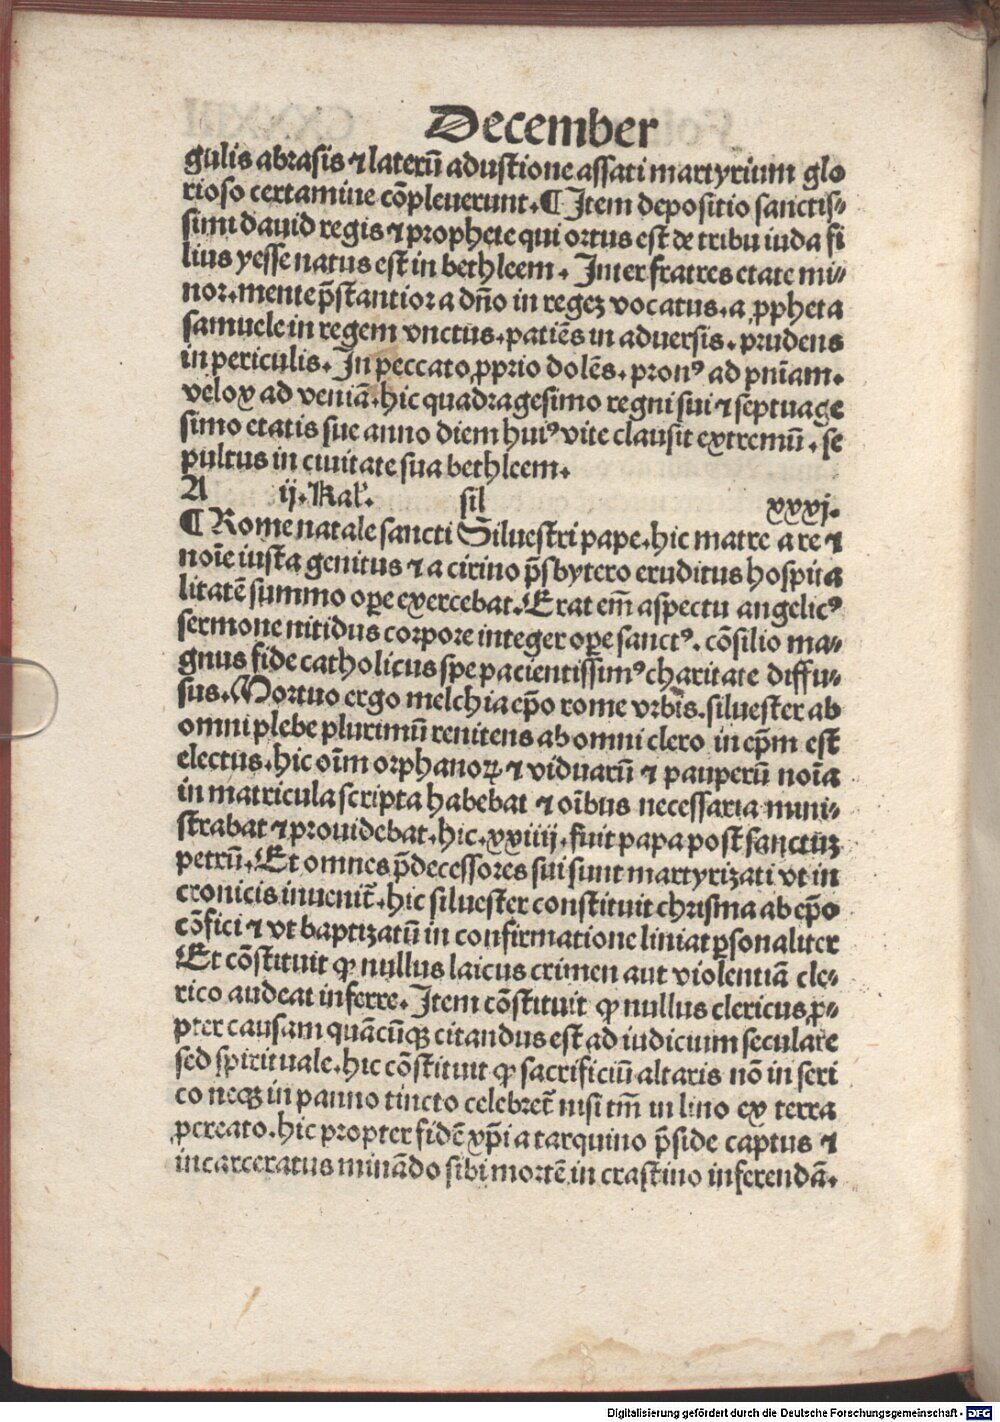 December
gulis abrasis ⁊ laterū adustione assati martyrium glo
rioso certamine cōpleuerunt. ¶ Item depositio sanctis⸗
simi dauid regis ⁊ prophete qui ortus est de tribu iuda fi
lius yesse natus est in bethleem. Inter fratres etate mi⸗
nor. mente p̄stantior a dn̄o in regeȝ vocatus. a ꝓpheta
samuele in regem vnctus. patiēs in aduersis. prudens
in periculis. In peccato ꝓprio dolēs. pronꝰ ad pn̄iam.
velox ad veniā. hic quadragesimo regni sui ⁊ septuage
simo etatis sue anno diem huiꝰ vite clausit extremū. se
pultus in ciuitate sua bethleem.
A ij. Kal'. sil xxxj.
¶ Rome natale sancti Siluestri pape. hic matre a re ⁊
noīe iusta genitus ⁊ a cirino p̄sbytero eruditus hospita
litatē summo oꝑe exercebat. Erat em̄ aspectu angelicꝰ
sermone nitidus corpore integer oꝑe sanctꝰ. cōsilio ma⸗
gnus fide catholicus spe pacientissimꝰ charitate diffu⸗
sus. Mortuo ergo melchia ep̄o rome vrbīs. siluester ab
omni plebe plurimū renitens ab omni clero in ep̄m est
electus. hic oīm orphanoꝝ ⁊ viduarū ⁊ pauperū noīa
in matricula scripta habebat ⁊ oībus necessaria mini⸗
strabat ⁊ prouidebat. hic. xxiiij. fuit papa post sanctūȝ
petrū. Et omnes p̄decessores sui sunt martyrizati vt in
cronicis inuenit̄. hic siluester constituit chrisma ab ep̄o
cōfici ⁊ vt baptizatū in confirmatione liniat ꝑsonaliter
Et cōstituit ꝙ nullus laicus crimen aut violentiā cle⸗
rico audeat inferre. Item cōstituit ꝙ nullus clericus ꝓ⸗
pter causam quācūqȝ citandus est ad iudicium seculare
sed spirituale. hic cōstituit ꝙ sacrificiū altaris nō in seri
co neqȝ in panno tincto celebret̄ nisi tm̄ in lino ex terra
ꝓcreato. hic propter fidē xp̄i a tarquino p̄side captus ⁊
incarceratus minādo sibi mortē in crastino inferendā.
Digitalisierung gefördert durch die Deutsche Forschungsgemeinschaft - DFG